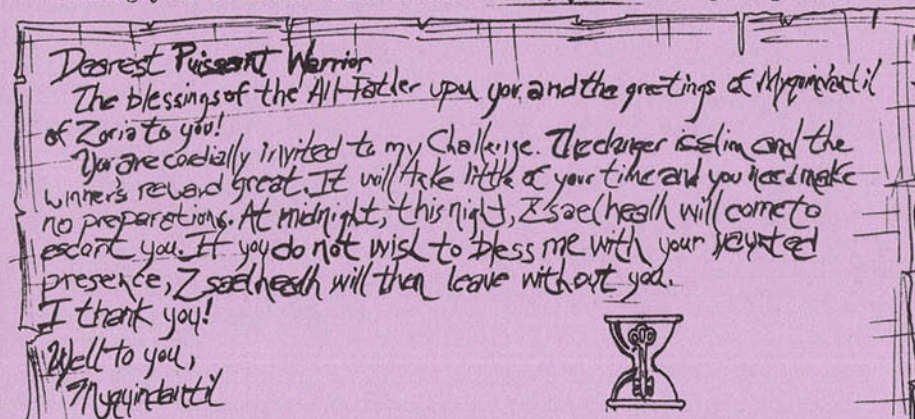 Dearest Puissant Warrior
The blessings of the All-Father upon you and the greetings of Myquindantil
of Zoria to you!
You are cordially invited to my Challenge. The danger is slim and the
winner's reward great. It will take little of your time and you need make
no preparations. At midnight, this night, Zsaelheath will come to
escort you. If you do not wish to bless me with your
presence, Zsaelheath will then leave without you.
I thank you!
Well to you,
Myquindantil